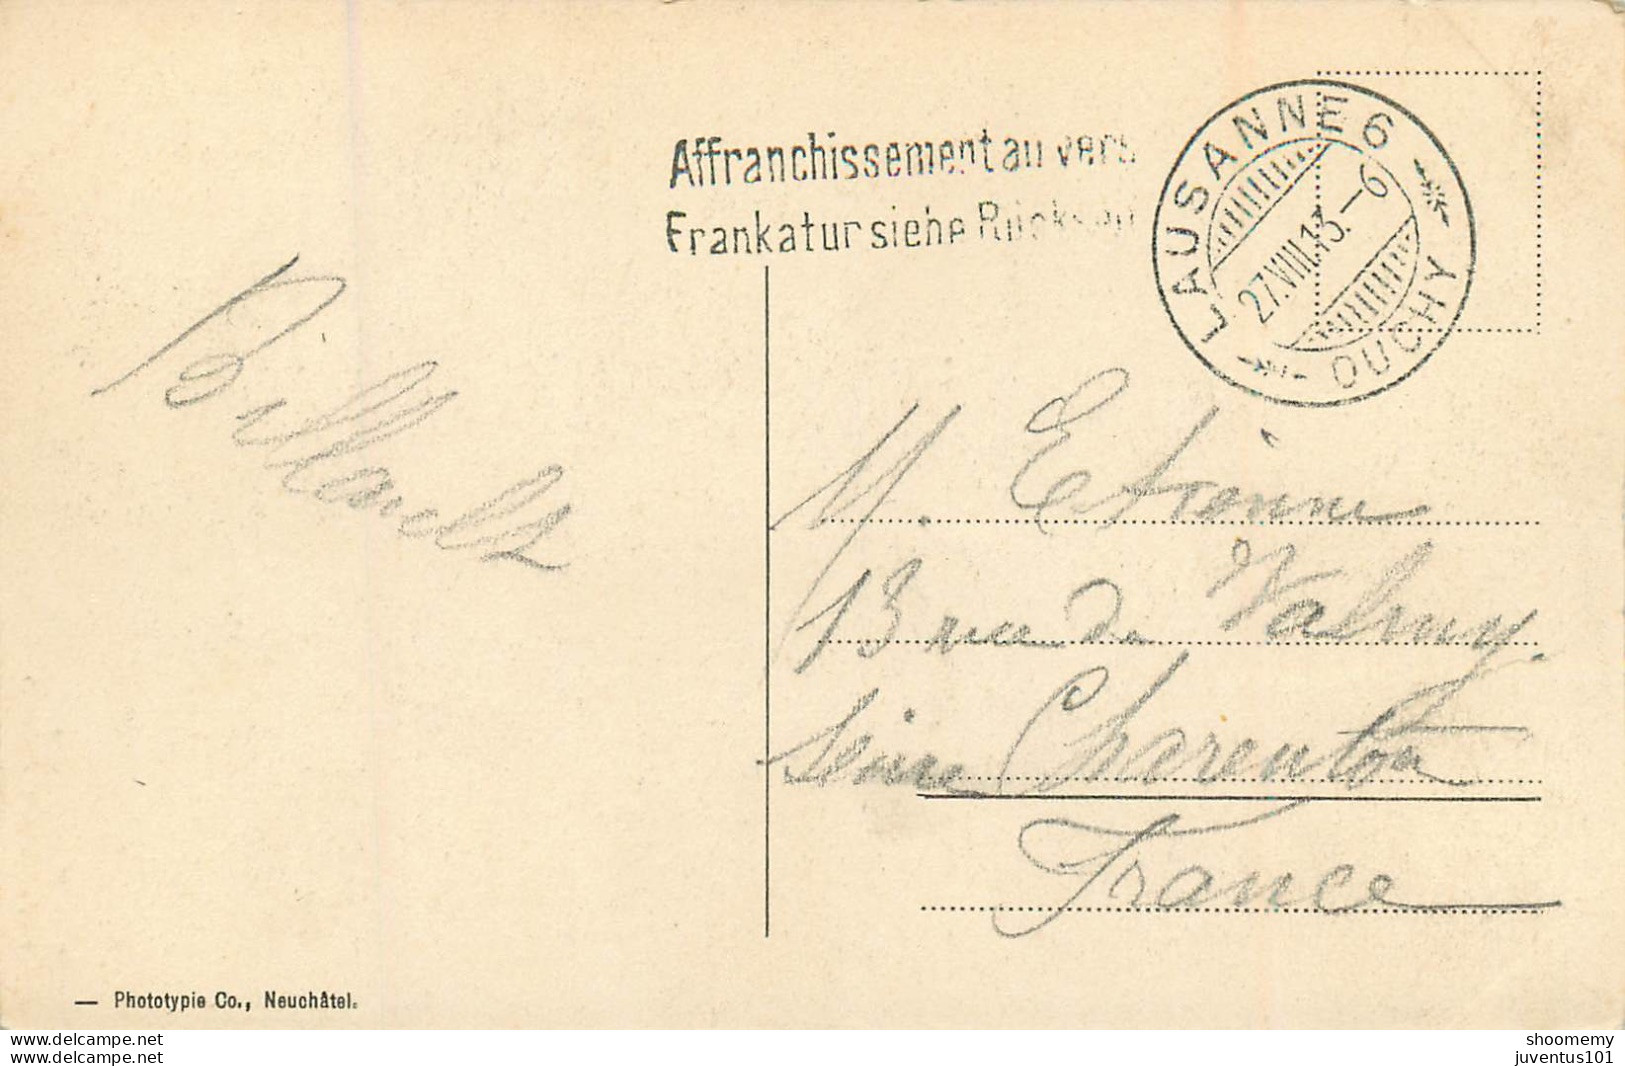 Affranchissement au vers
Frankatur siehe Rücks
LAUSANNE 6
27.VIII.13.–6
OUCHY
M. Etienne
13 rue de Valmy.
Seine Charenton
France
— Phototypie Co., Neuchâtel.
www.delcampe.net
www.delcampe.net
shoomemy
juventus101